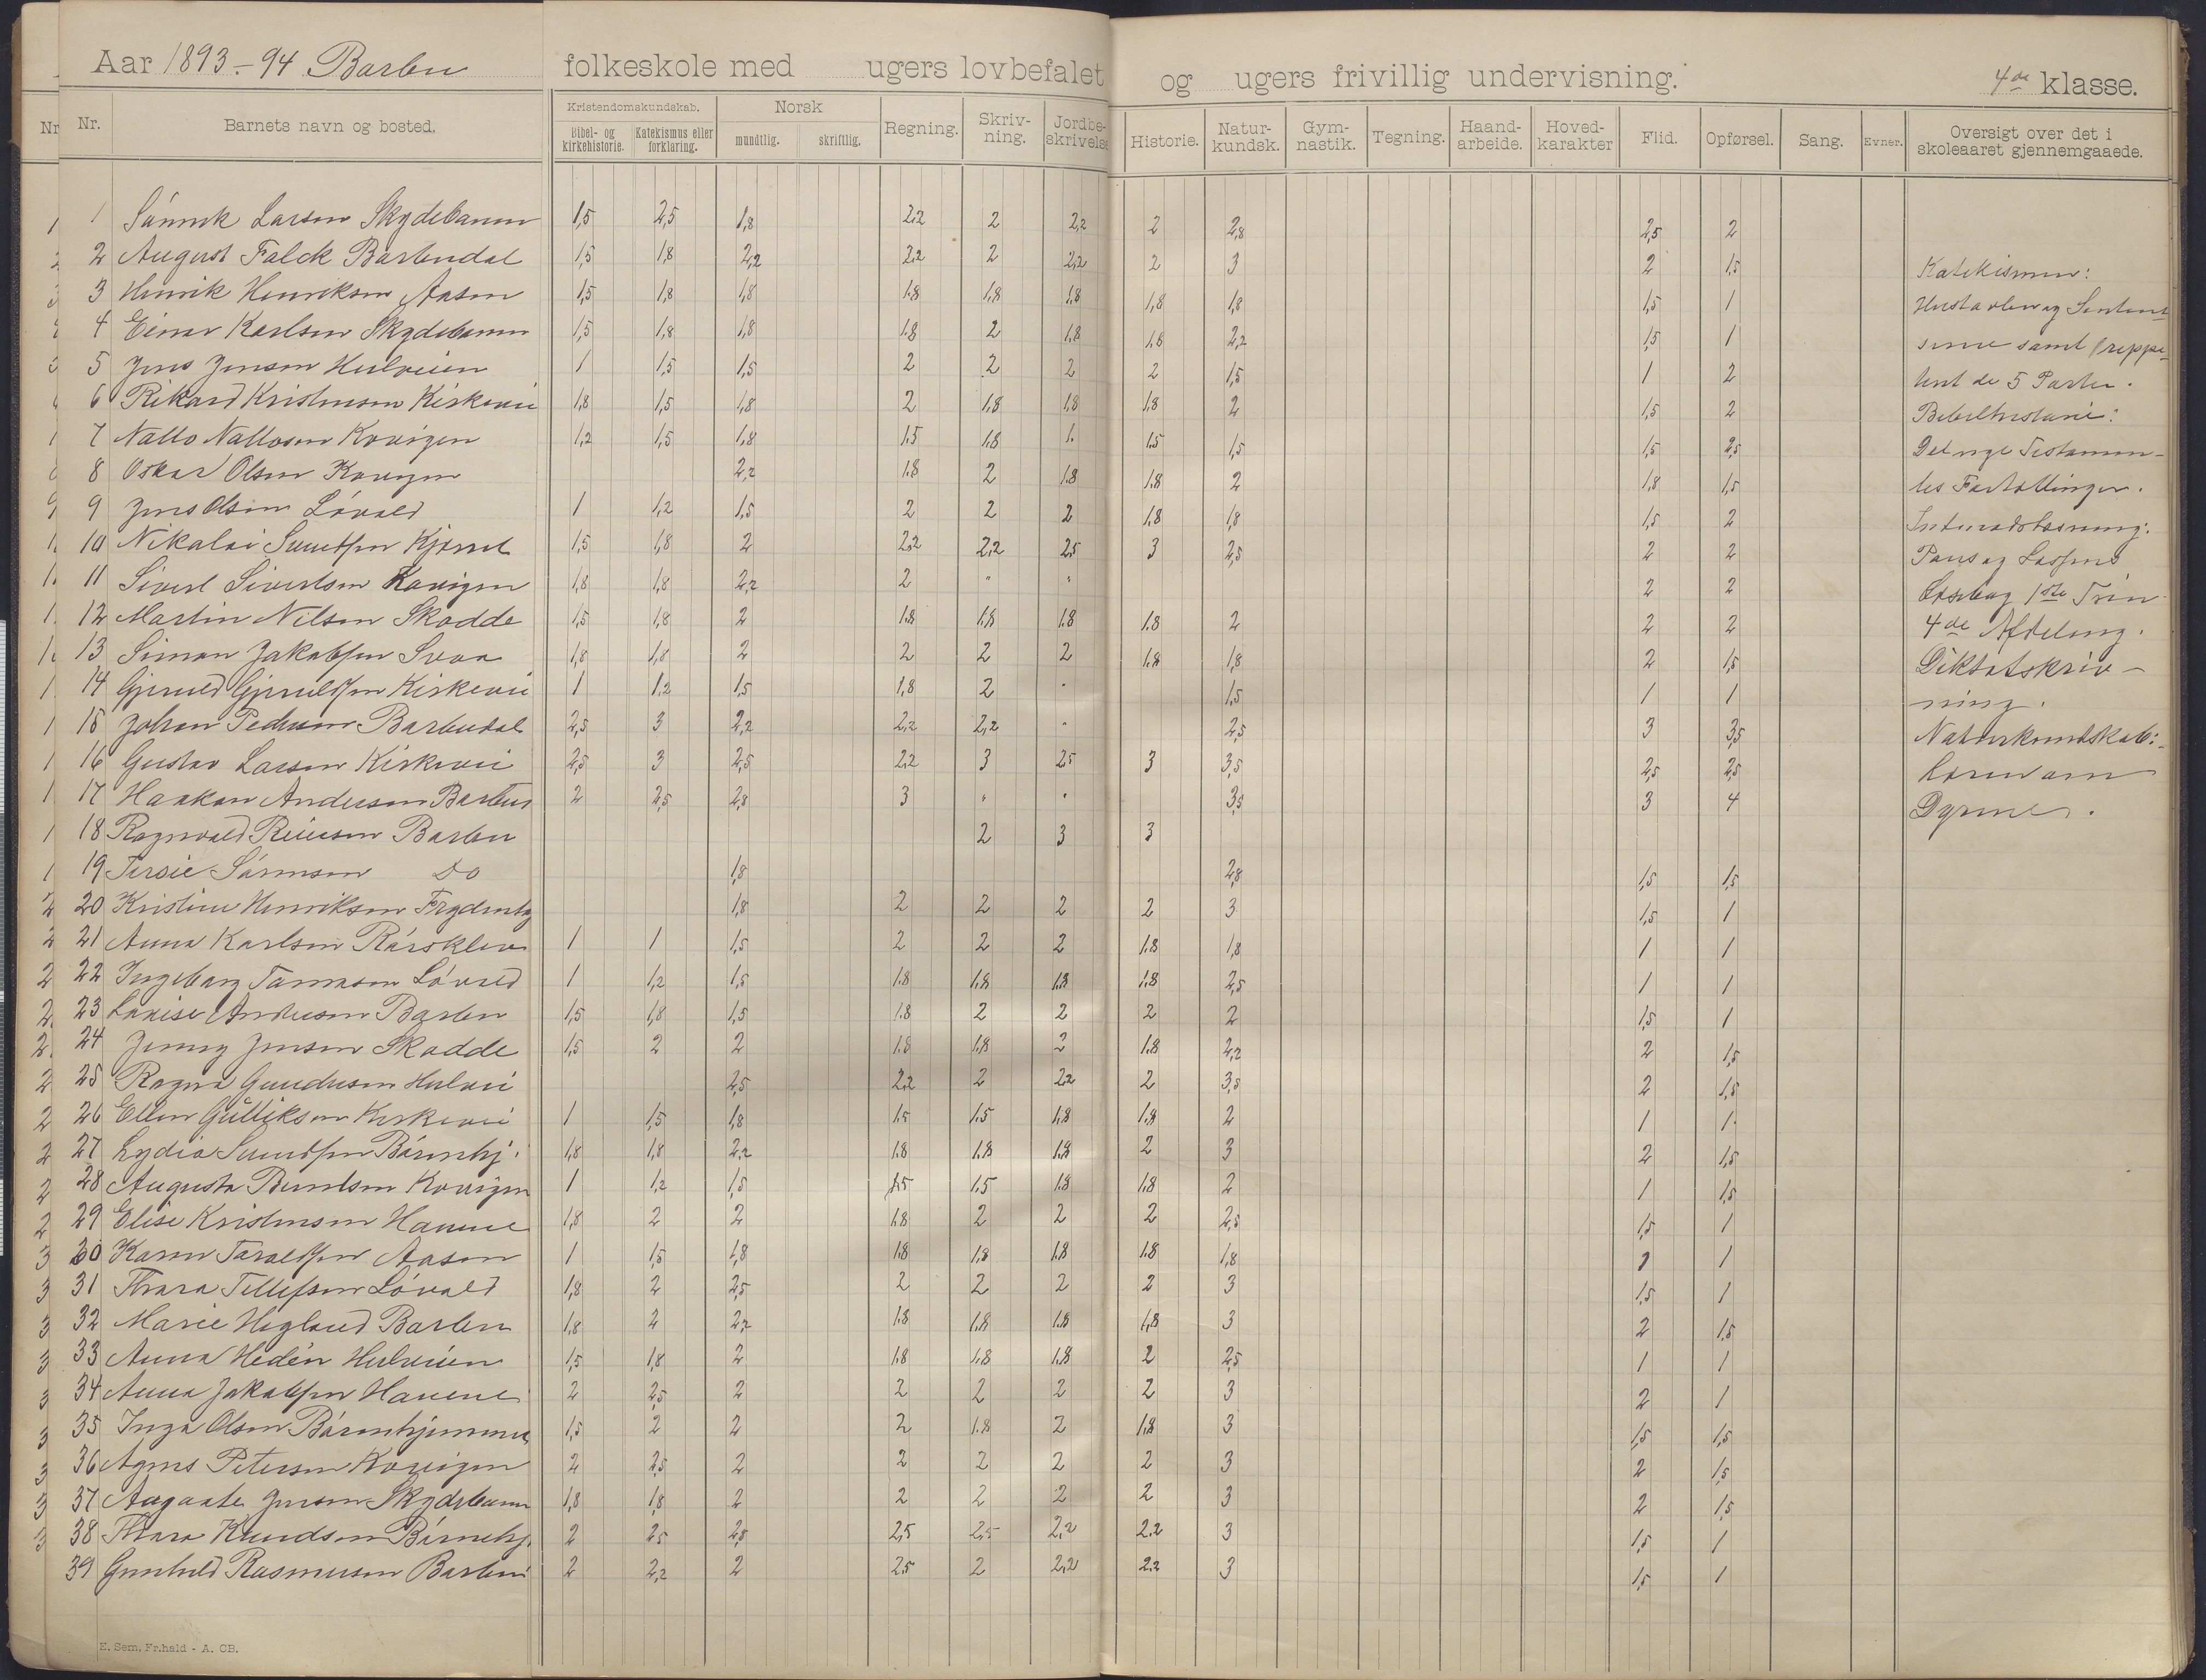 Aar 1893-94 Barbu folkeskole med ugers lovbefalet og ugers frivillig undervisning. 4de klasse.
Nr. Nr. Barnets navn og bosted. Kristendomskundskab. Bibel- og kirkehistorie. Katekismus eller forklaring. Norsk mundtlig. skriftlig. Regning. Skriv-ning. Jordbe-skrivelse Historie. Natur-kundsk. Gym-nastik. Tegning. Haand-arbeide. Hoved-karakter Flid. Opførsel. Sang. Evner. Oversigt over det i skoleaaret gjennemgaaede.
1 Larsen 1,5 2,5 1,8 2,2 2 2,2 2 2,8 2,5 2
2 August Falck Barbudal 1,5 1,8 2,2 2,2 2 2,2 2 3 2 1,5
3 Henrik Henriksen Aasen 1,5 1,8 1,8 1,8 1,8 1,8 1,8 1,8 1,5 1
4 Einar Karlsen Skydebanen 1,5 1,8 1,8 1,8 2 1,8 1,8 2,2 1,5 1
5 Jens Jensen Hulveien 1 1,5 1,5 2 2 2 2 1,5 1 2
6 Rikard Kristensen Kirkevei 1,8 1,5 1,8 2 1,8 1,8 1,8 2 1,5 2
7 Nallo Nallosen Kovigen 1,2 1,5 1,8 1,5 1,8 1. 1,5 1,5 1,5 2,5
8 Oskar Olsen Kovigen 2,2 1,8 2 1,8 1,8 2 1,8 1,5
9 Jens Olsen Lóvold 1 1,2 1,5 2 2 2 1,8 1,8 1,5 2
10 Nikolai Kjørret 1,5 1,8 2 2,2 2,2 2,5 3 2,5 2 2
11 Sivert Sivertsen Kovigen 1,8 1,8 2,2 2 " " 2 2
12 Martin Nilsen Skodde 1,5 1,8 2 1,8 1,8 1,8 1,8 2 2 2
13 Simon Jakobsen Svoa 1,8 1,8 2 2 2 2 1,8 1,8 2 1,5
14 Gjeruld Gjeruldsen Kirkevei 1 1,2 1,5 1,8 2 " 1,5 1 1
15 Johan Pedersen Barbudal 2,5 3 2,2 2,2 2,2 " 2,5 3 3,5
16 Gustav Larsen Kirkevei 2,5 3 2,5 2,2 3 2,5 3 3,5 2,5 2,5
17 Haakon Andersen Barbu 2 2,5 2,8 3 " " 3,5 3 4
18 Ragnvald Reiersen Barbu 2 3 3
19 Terje Sórensen do 1,8 2,8 1,5 1,5
20 Kristine Henriksen 1,8 2 2 2 2 3 1,5 1
21 Anna Karlsen Rórsklev 1 1 1,5 2 2 2 1,8 1,8 1 1
22 Ingeborg Lóvold 1 1,2 1,5 1,8 1,8 1,8 1,8 2,5 1 1
23 Lovise Andersen Barbu 1,5 1,8 1,5 1,8 2 2 2 2 1,5 1
24 Jenny Jensen Skodde 1,5 2 2 1,8 1,8 2 1,8 2,2 2 1,5
25 Ragna Gundersen Hulvei 2,5 2,2 2 2,2 2 3,5 2 1,5
26 Ellen Gulliksen Kirkevei 1 1,5 1,8 1,5 1,5 1,8 1,8 2 1 1
27 Lydia Bórnehj. 1,8 1,8 2,2 1,8 1,8 1,8 2 3 2 1,5
28 Augusta Berntsen Kovigen 1 1,2 1,5 1,5 1,5 1,8 1,8 2 1 1,5
29 Elise Kristensen Havene 1,8 2 2 1,8 2 2 2 2,5 1,5 1
30 Karen Taraldsen Aasen 1 1,5 1,8 1,8 1,8 1,8 1,8 1,8 1 1
31 Thora Tellefsen Lóvold 1,8 2 2,5 2 2 2 2 3 1,5 1
32 Marie Hegland Barbu 1,8 2 2,2 1,8 1,8 1,8 1,8 3 2 1,5
33 Anna Hedén Hulveien 1,5 1,8 2 1,8 1,8 1,8 2 2,5 1 1
34 Anna Jakobsen Havene 2 2,5 2 2 2 2 2 3 2 1
35 Inga Olsen Bórnehjemmet 1,5 2 2 2 1,8 2 1,8 3 1,5 1,5
36 Agnes Petersen Kovigen 2 2,5 2 2 2 2 2 3 2 1,5
37 Aagaate Jensen Skydebanen 1,8 1,8 2 2 2 2 2 3 2 1,5
38 Thora Knudsen Bórnehj. 2 2,5 2,5 2,5 2,5 2,2 2,2 3 1,5 1
39 Gunhild Rasmussen Barbu 2 2,2 2 2,5 2 2,2 2,2 3 1,5 1
Katekismen:
Hustavlen og
samt reppe-
tert de 5 Parter.
Bibelhistorie:
Det nye Testamen-
tes Fortællinger.
Pauss og Lassens
Læsebog 1ste Trin
4de Afdeling.
Diktatskriv-
ning.
Naturkundskab:
Dyrene.
E. Sem, Fr.hald - A. CB.